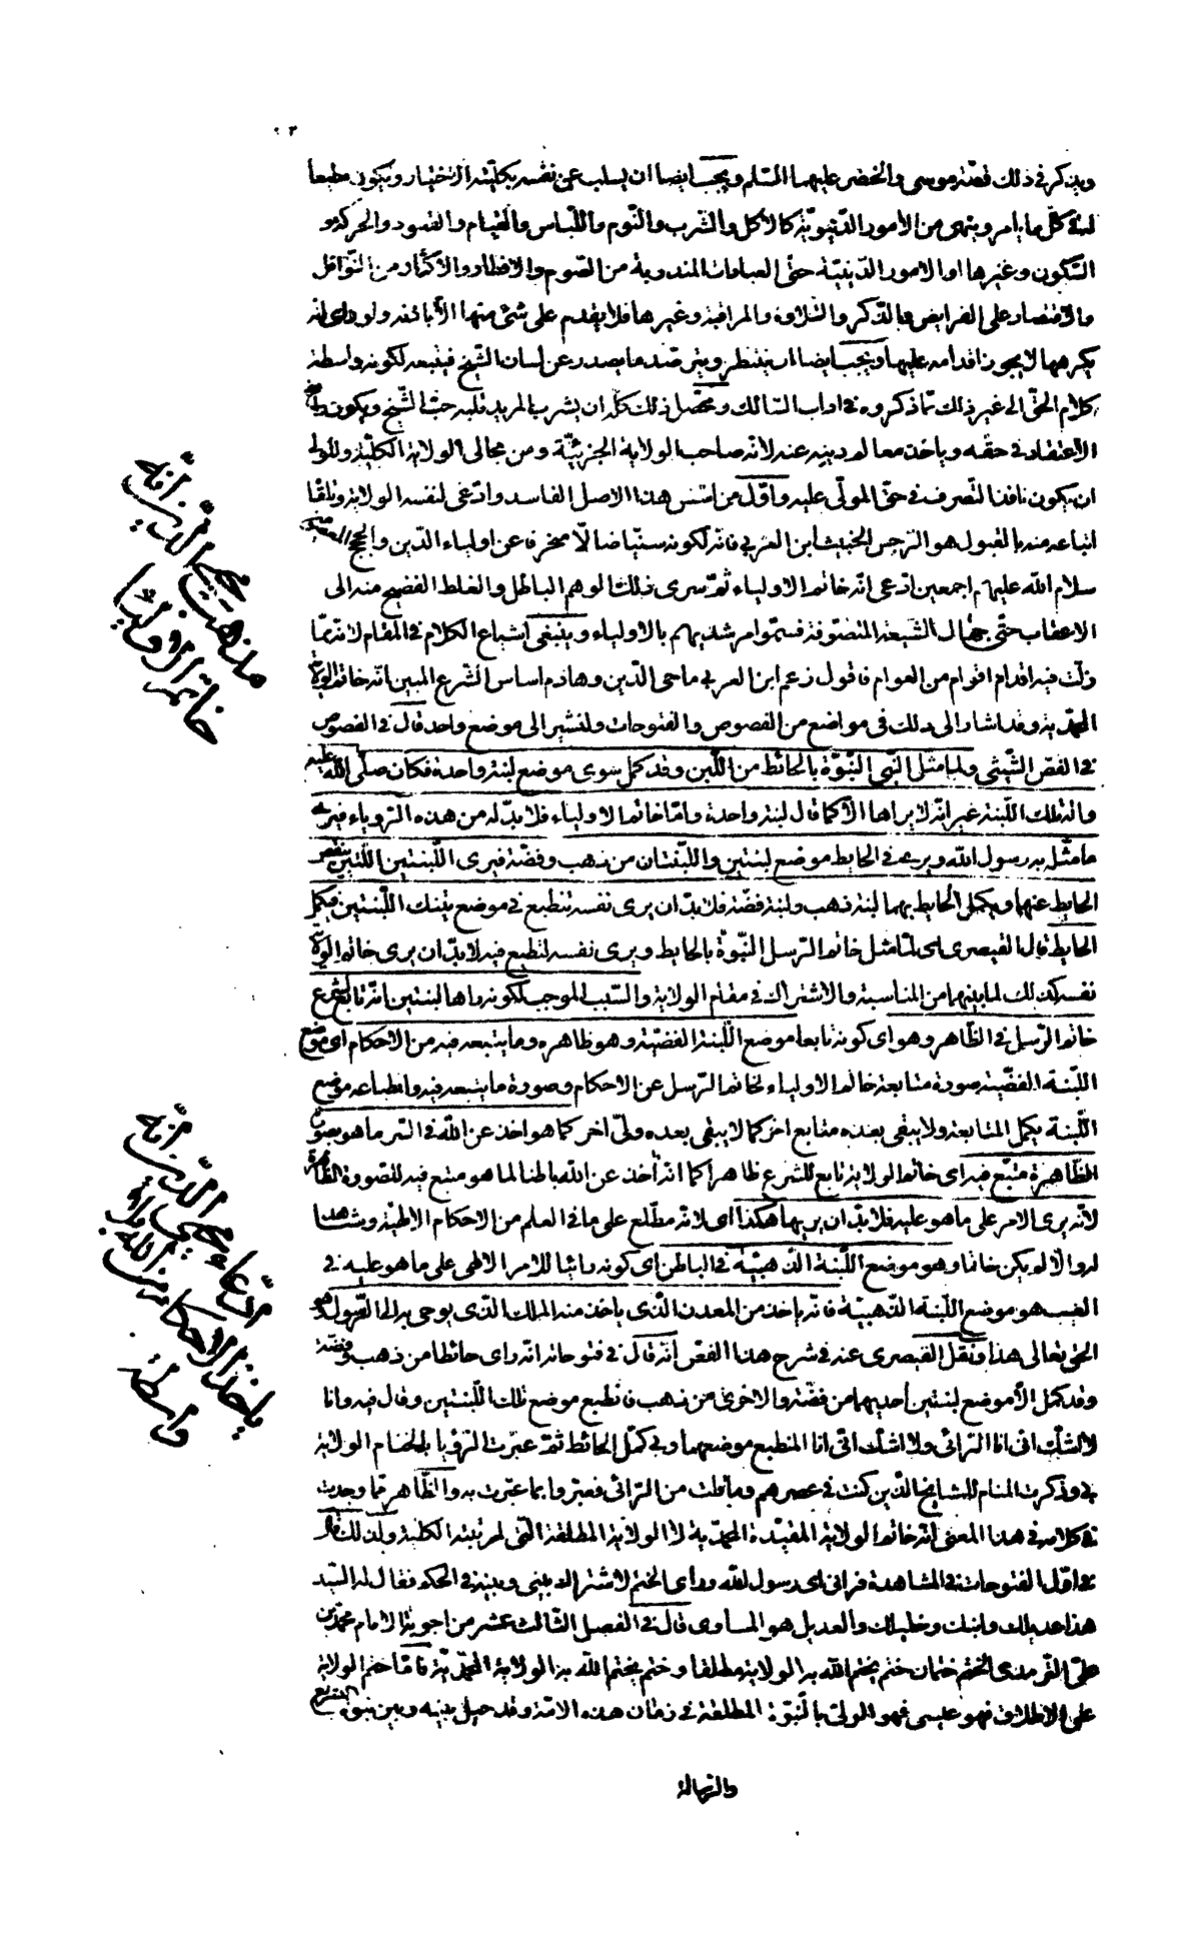 ويذكر في ذلك قصّة موسى والخضر عليهما السّلم ويجب ايضا ان يسلب عن نفسه بكليّته الاختيار ويكون مطيعا
لشيخه كلّ ما يأمر وينهى من الامور الدّنيويّة كالاكل والشرب والنّوم واللّباس والقيام والقعود والحركة و
السّكون وغيرها او الامور الدّينيّة حتّى العبادات المندوبة من الصّوم والافطار والاكثار من النّوافل
والاقتصار على الفرايض والذّكر والتلاوة والمراقبة وغيرها فلا يقدم على شئ منها الّا باذنه ولو راى انّه
يكرهها لا يجوز اقدامه عليها ويجب ايضا ان ينتظر ويترصّد ما يصدر عن لسان الشّيخ فيتبعه لكونه واسطة
كلام الحقّ الى غير ذلك ممّا ذكروه في اداب السّالك ومحصّل ذلك كلّه ان يشرب المريد قلبه حبّ الشّيخ ويكون
الاعتقاد في حقّه وياخذ معالم دينه عنه لانّه صاحب الولاية الجزئيّة ومن مجالى الولاية الكليّة وللولى
ان يكون نافذ التّصرف في حقّ المولّى عليه واوّل من اسّس هذا الاصل الفاسد وادّعى لنفسه الولاية وتلقّا
اتباعه منه بالقبول هو الرّجس الخبيث ابن العربي فانّه لكونه سنّيا ضالّا منحرفا عن اولياء الدّين والحجج المعصومين
سلام الله عليهم اجمعين ادّعى انّه خاتم الاولياء ثمّ سرى ذلك الوهم الباطل والغلط الفضيح منه الى
الاعقاب حتّى جهّال الشّيعة المتصوّفة فسمّوا مرشديهم بالاولياء وينبغي اشباع الكلام في المقام لانّه ممّا
زلّت فيه اقدام اقوام من العوام فاقول زعم ابن العربي ماحى الدّين وهادم اساس الشّرع المبين انّه خاتم الولاية
المحمّدية وقد اشار الى ذلك في مواضع من الفصوص والفتوحات ولنشير الى موضع واحد قال في الفصوص
في الفصّ الشّيثى ولما مثّل النّبي النّبوّة بالحائط من اللّبن وقد كمل سوى موضع لبنة واحدة فكان صلّى الله عليه
واله تلك اللّبنة غير انّه لا يراها الّا كما قال لبنة واحدة وامّا خاتم الاولياء فلا بدّ له من هذه الرّوياء فيرى
ما مثّل به رسول الله ويرى في الحايط موضع لبنتين واللّبنتان من ذهب وفضّة فيرى اللّبنتين اللّتين ينقص
الحايط عنهما ويكمل الحايط بهما لبنة ذهب ولبنة فضّة فلا بدّ ان يرى نفسه تنطبع في موضع تينك اللّبنتين فيكمل
الحايط قال القيصرى اى لمّا مثّل خاتم الرّسل النّبوّة بالحايط ويرى نفسه تنطبع فيه لا بدّ ان يرى خاتم الولاية
نفسه كذلك لما بينهما من المناسبة والاشتراك في مقام الولاية والسّبب الموجب لكونه راها لبنتين انّه تابع لشرع
خاتم الرّسل في الظّاهر وهو اى كونه تابعا موضع اللّبنة الفضيّة وهو ظاهره وما يتبعه فيه من الاحكام اى موضع
اللّبنة الفضّية صورة متابعة خاتم الاولياء لخاتم الرّسل عن الاحكام وصورة ما يتبعه فيه وانطباعه موضع
اللّبنة يكمل المتابعة ولا يبقى بعده متابع اخر كما لا يبقى بعده ولىّ اخر كما هو اخذ عن الله في السّر ما هو بصورة
الظّاهرة متّبع فيه اى خاتم الولاية تابع للشرع ظاهرا كما انّه أخذ عن الله باطنا لما هو متبع فيه للصورة الظّاهرة
لانّه يرى الامر على ما هو عليه فلا بدّ ان يريها هكذا اى لانّه مطّلع على ما في العلم من الاحكام الالهيّة وشاهد
له والّا لم يكن خاتما وهو موضع اللّبنة الذّهبيّة في الباطن اى كونه رائيا للامر الالهى على ما هو عليه في
الغيب هو موضع اللّبنة الذّهبيّة فانّه ياخذ من المعدن الّذى ياخذ منه الملك الذّى يوحى به الى الرّسول
الحق تعالى هذا ونقل القيصرى عنه في شرح هذا الفصّ انّه قال في فتوحاته انّه راى حائطا من ذهب وفضّة
وقد كمل الّا موضع لبنتين أحديهما من فضّة والاخرى من ذهب فانطبع موضع تلك اللّبنتين وقال فيه وانا
لا اشكّ انّى انا الرّائى ولا اشكّ انّى انا المنطبع موضعهما وبى كمل الحائط ثمّ عبّرت الرّؤيا بالختام الولاية
بى وذكرت المنام للمشايخ الّذين كنت في عصرهم وما قلت من الرّائى فعبّروا بما عبّرت به والظّاهر ممّا وجدت
في كلامه في هذا المعنى انّه خاتم الولاية المقيّدة المحمّدية لا الولاية المطلقة التّى لمرتبته الكليّة ولذلك قال
في اوّل الفتوحات في المشاهدة فرانى اى رسول الله وراى الختم لاشتراك بينى وبينه في الحكم فقال له السّيد
هذا عديلك وابنك وخليلك والعديل هو المساوى قال في الفصل الثّالث عشر من اجوبة الامام محمّد بن
علىّ التّرمذى الختم ختمان ختم يختم الله به الولاية مطلقا وختم يختم الله به الولاية المحمّديّة فامّا ختم الولاية
على الاطلاق فهو عيسى فهو الولىّ بالنّبوّة المطلقة في زمان هذه الامّة وقد حيل بينه وبين نبوّة التشريع
والرّسالة
ما ذهب محيى الدّين انّه
خاتم الاولياء
ادّعاء محيى الدّين انّه
ياخذ الاحكام من الله بلا
واسطة